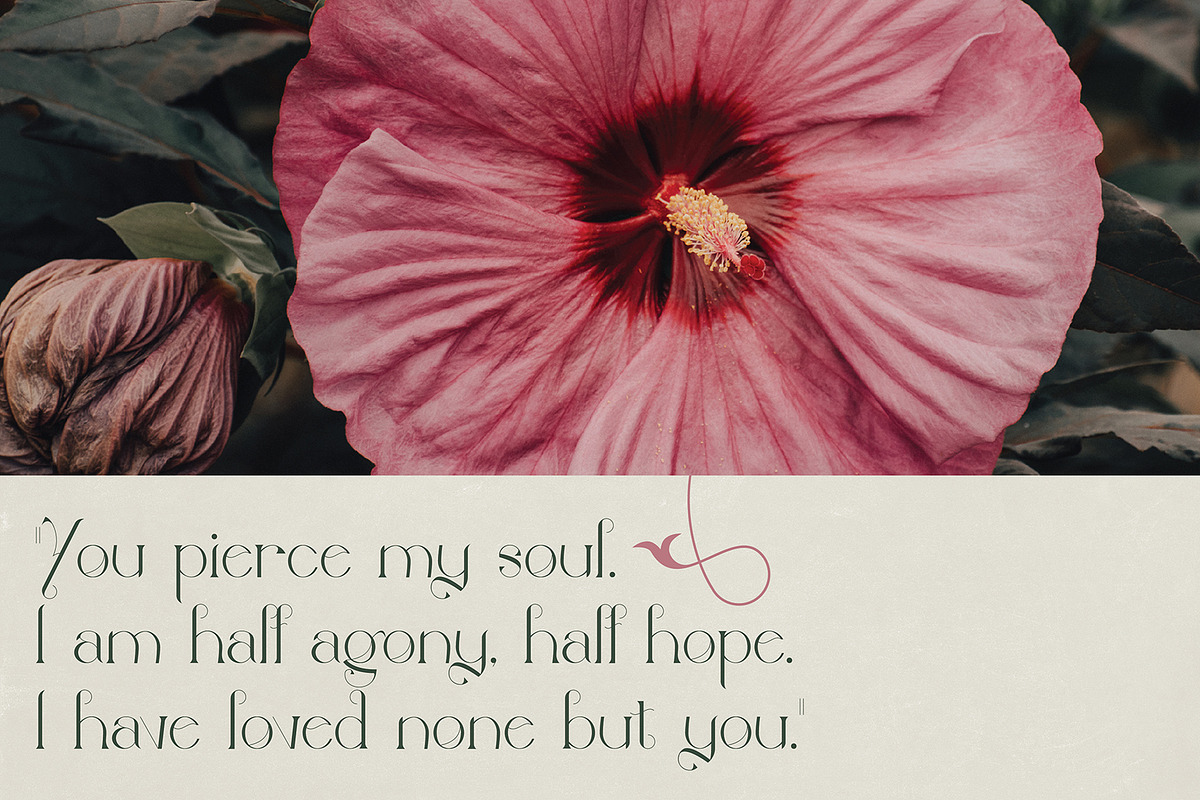 "You pierce my soul.
I am half agony, half hope.
I have loved none but you."